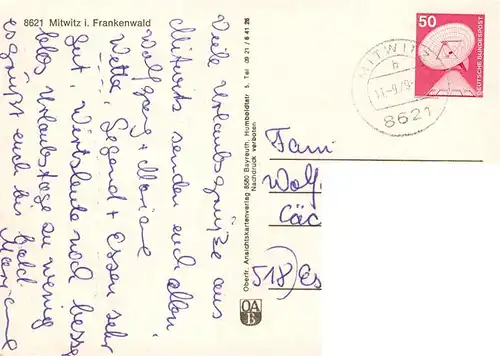 8621 Mitwitz i. Frankenwald
Viele Urlaubsgrüße aus
Mitwitz senden euch allen
Wolfgang + Mariane
Wetter, Gegend + Essen sehr
gut, Wirtsleute noch besser
blos Urlaubstage zu wenig
es grüßt euch bis bald
Mariane
Oberfr. Ansichtskartenverlag 8580 Bayreuth, Humboldtstr. 5, Tel. 09 21 / 6 41 26
Nachdruck verboten
OA
B
MITWITZ
h
8621
50
DEUTSCHE BUNDESPOST
Fam
Wolf
Cäc
518) Es